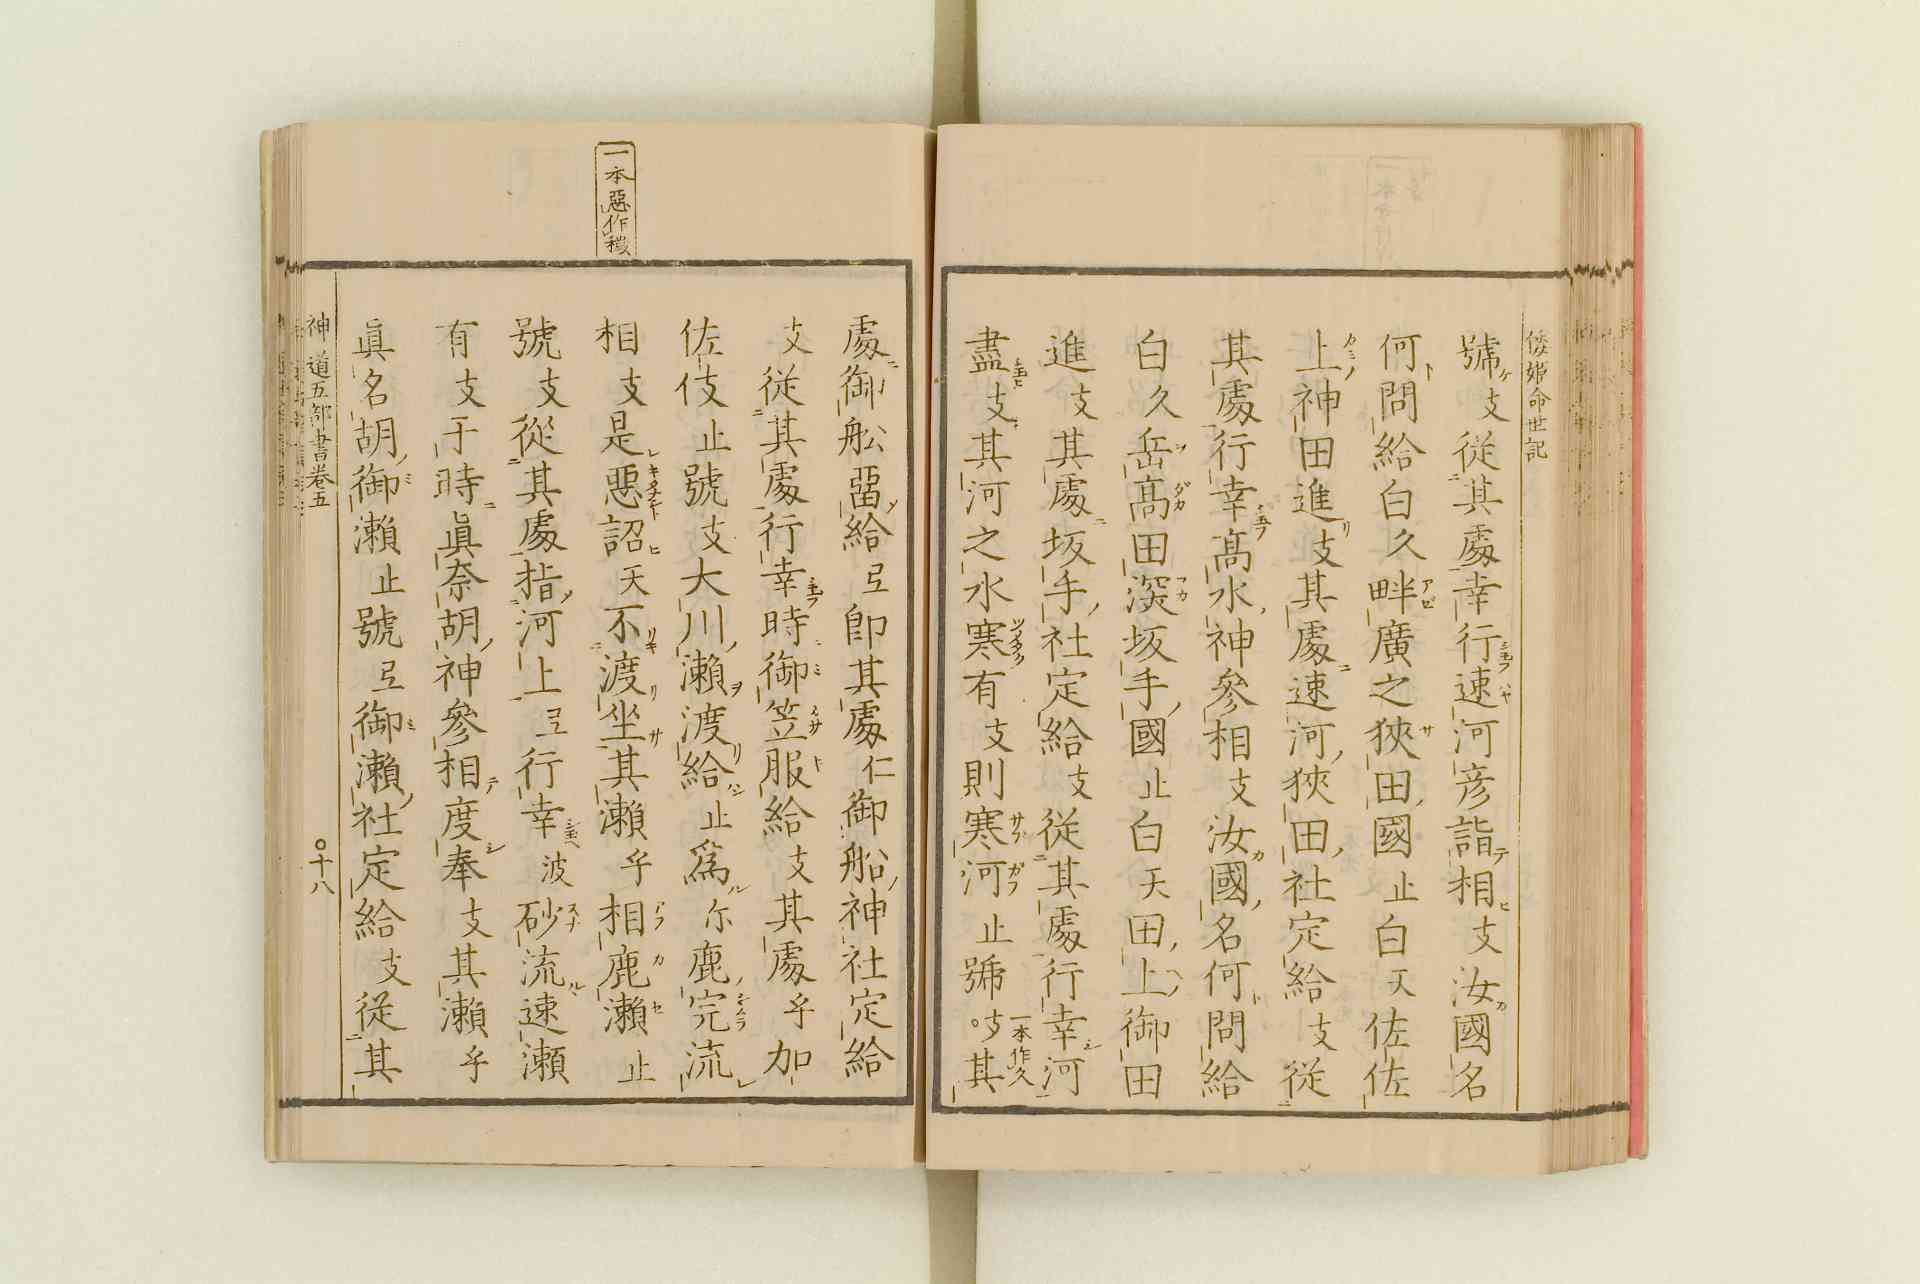 倭姬命世記
號支從其處幸行速河彦詣相支汝國名
何問給白久畔廣之狹田國止白天佐佐
上神田進支其處速河狹田社定給支從
其處行幸髙水神參相支汝國名何問給
白久岳髙田深坂手國止白天田上御田
進支其處坂手社定給支從其處行幸河
盡支其河之水寒有支則寒河止號支其
一本作久
一本惡作穢
處御舩留給弖卽其處仁御船神社定給
支從其處行幸時御笠服給支其處乎加
佐伎止號支大川瀬渡給止爲尓鹿完流
相支是悪詔天不渡坐其瀬乎相鹿瀬止
號支從其處指河上弖行幸波砂流速瀬
有支于時眞奈胡神參相度奉支其瀬乎
眞名胡御瀬止號弖御瀬社定給支從其
神道五部書卷五
十八